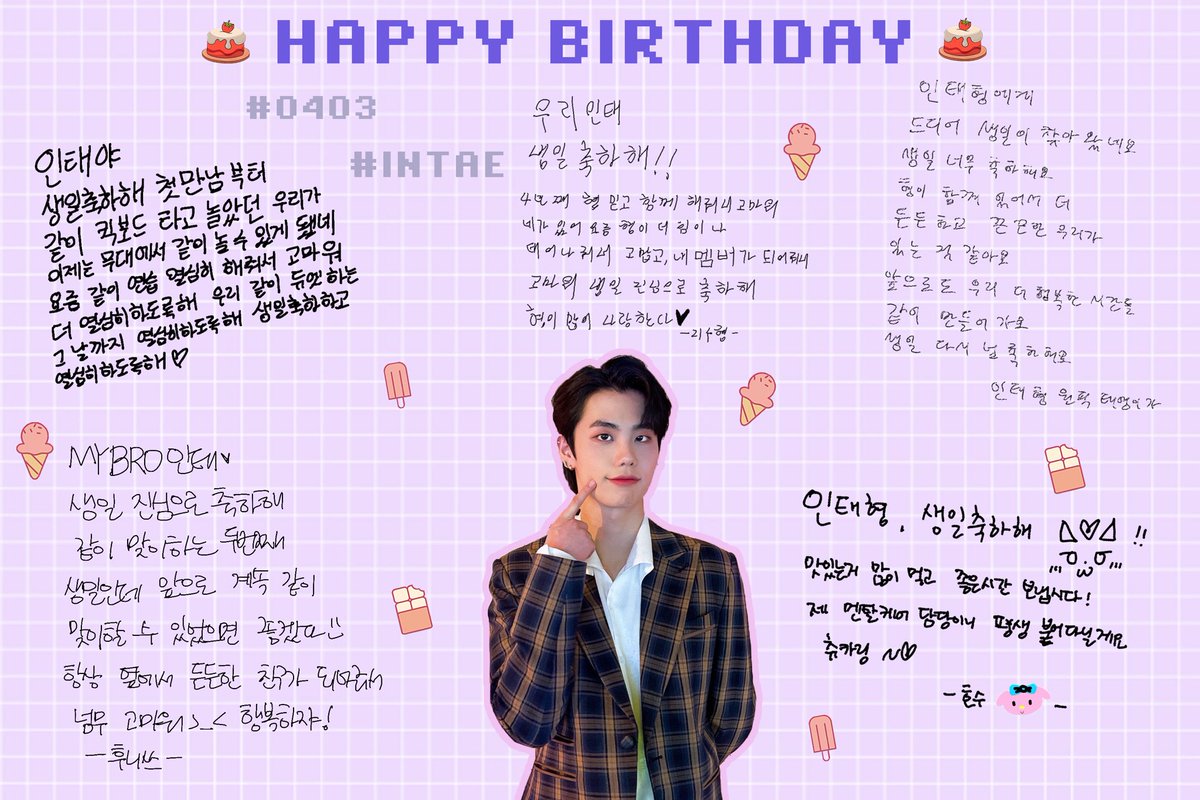 HAPPY BIRTHDAY
#0403
#INTAE
인태야
생일축하해 첫만남부터
같이 퀵보드 타고 놀았던 우리가
이제는 무대에서 같이 놀 수 있게 됐네
요즘 같이 연습 열심히 해줘서 고마워
더 열심히하도록해 우리 같이 듀엣하는
그 날까지 열심히하도록해 생일축하하고
열심히하도록해♡
우리 인태
생일 축하해!!
4번째 형 믿고 함께 해줘서 고마워
네가 있어 요즘 형이 더 힘이 나
태어나줘서 고맙고, 내 멤버가 되어줘서
고마워 생일 진심으로 축하해
형이 많이 사랑한다♥
-리수형-
인태형에게
드디어 생일이 찾아왔네요
생일 너무 축하해요
형이 함께 있어서 더
든든하고 끈끈한 우리가
있는 것 같아요
앞으로도 우리 더 행복한 시간들
같이 만들어가요
생일 다시 넘 축하해요
인태형 원픽 태영이가
MY BRO 인태♥
생일 진심으로 축하해
같이 맞이하는 두번째
생일인데 앞으로 계속 같이
맞이할 수 있었으면 좋겠다
항상 옆에서 든든한 친구가 되어줘서
넘무 고마워>_< 행복하쟈!
-후니쓰-
인태형, 생일축하해 !!
맛있는거 많이 먹고 좋은시간 보냅시다!
제 멘탈케어 담당이니 평생 붙어다닐게요
츄카링 ~♡
-혼수 -